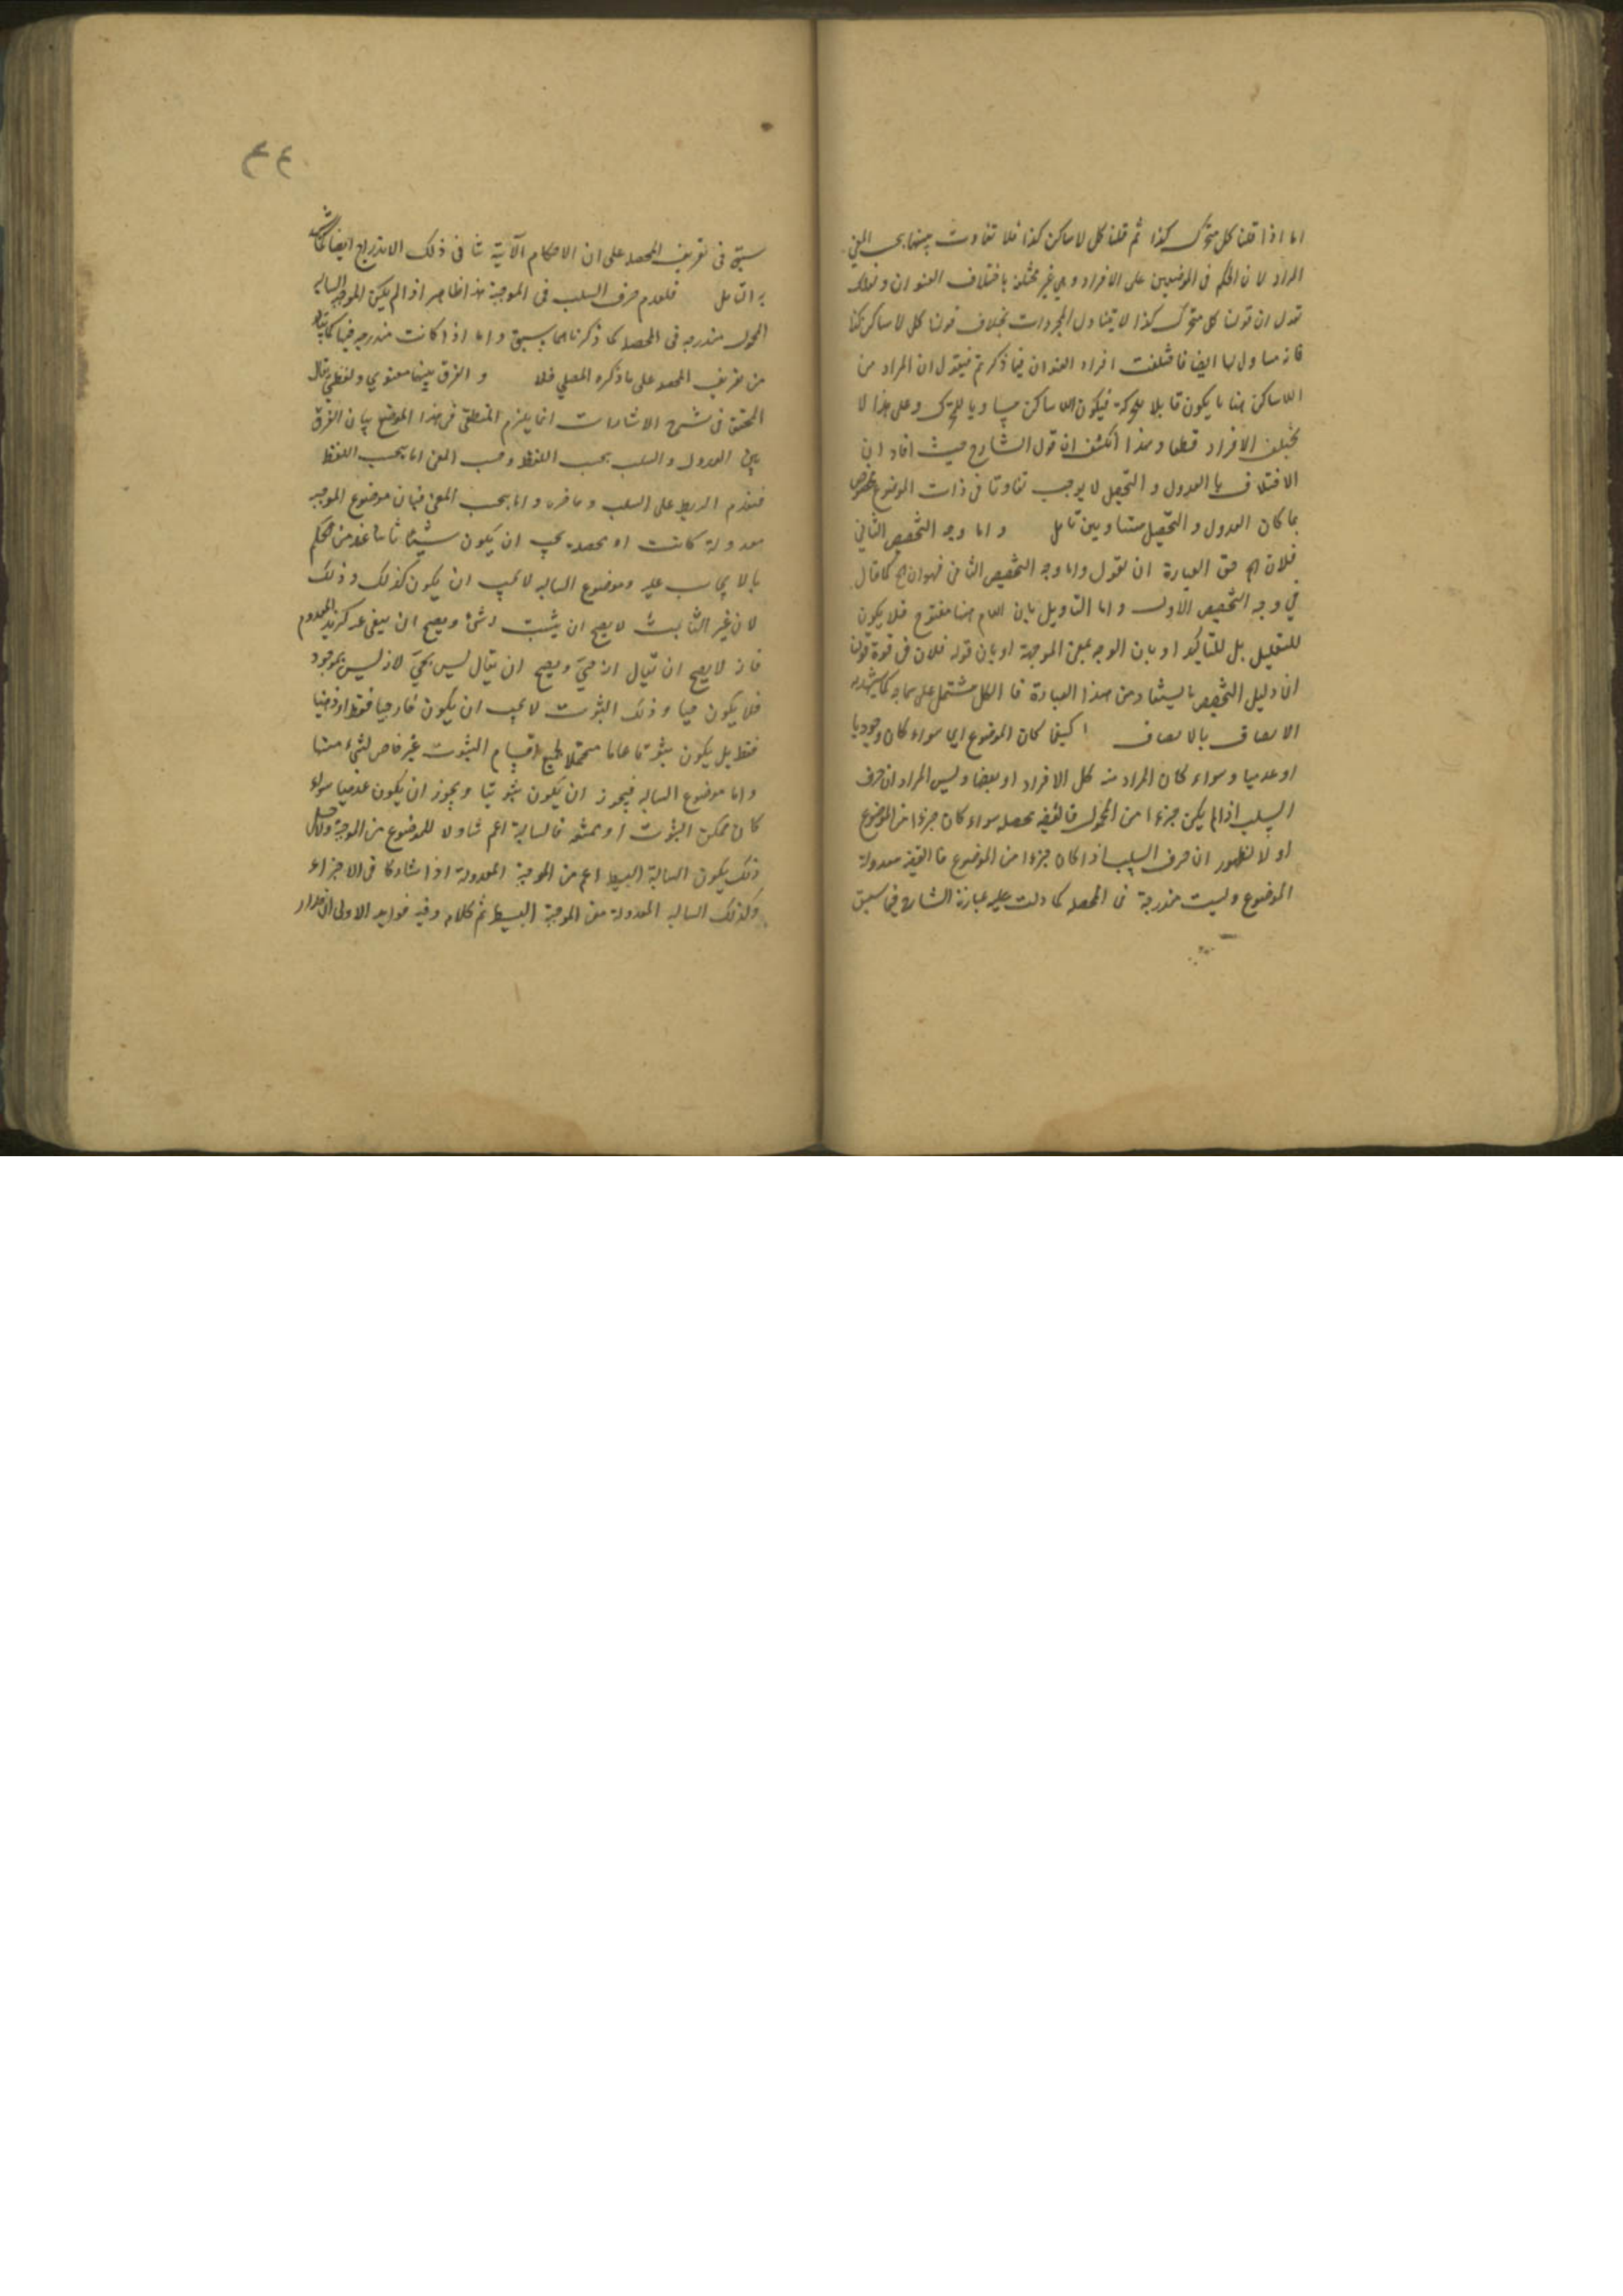 اما اذا قلنا كل متحرك كذا ثم قلنا كل لا ساكن كذا فلا تفاوت بينهما بحسب المعنى
المراد لان الحكم في الموضعين على الافراد وهي غير مختلفة باختلاف العنوان ولك
تقول ان قولنا كل متحرك كذا لا يتناول المجردات بخلاف قولنا كل لا ساكن كذا
فانه متناول لها ايضا فاختلفت افراد العنوان فيما ذكرتم فيقول ان المراد من
اللاساكن هنا ما يكون قابلا للحركة فيكون اللاساكن مساويا للمتحرك وعلى هذا لا
يختلف الافراد قطعا وبهذا انكشف ان قول الشارح حيث افاد ان
الاختلاف بالعدول والتحصيل لا يوجب تفاوتا في ذات الموضوع مخصوص
بما كان العدول والتحصيل متساويين تأمل واما وجه التخصيص الثاني
فلان الخ حق العبارة ان يقول واما وجه التخصيص الثاني فهو ان الخ كما قال
في وجه التخصيص الاول واما التأويل بان اللام هنا مفتوح فلا يكون
للتعليل بل للتأكيد او بان الوجه بمعنى الموجهة او بان قوله فلان في قوة قولنا
ان دليل التخصيص ما يستفاد من هذا العبارة فالكل مشتمل على سماجة كما يشهد به
الانصاف بالانصاف كيفما كان الموضوع اي سواء كان وجوديا
او عدميا وسواء كان المراد منه كل الافراد او بعضا وليس المراد ان حرف
السلب اذا لم يكن جزءا من المحمول فالقضية محصلة سواء كان جزءا من الموضوع
او لا لظهور ان حرف السلب اذا كان جزءا من الموضوع فالقضية معدولة
الموضوع وليست مندرجة في المحصلة كما دلت عليه عبارة الشارح فيما سبق
٤٤
سبق في تعريف المحصلة على ان الاحكام الآتية تنافي ذلك الاندراج ايضا كما يشهد
به التأمل فلعدم حرف السلب في الموجبة هذا ظاهر اذا لم يكن الموجبة السالبة
المحمول مندرجة في المحصلة كما ذكرناه فيما سبق واما اذا كانت مندرجة فيها كما يتبادر
من تعريف المحصلة على ما ذكره المصلي فلا والفرق بينهما معنوي ولفظي قال
المحقق في شرح الاشارات انما يلزم المنطقي في هذا الموضع بيان الفرق
بين العدول والسلب بحسب اللفظ وحسب المعنى اما بحسب اللفظ
فتقدم الربط على السلب وتاخره واما بحسب المعنى فبان موضوع الموجبة
معدولة كانت او محصلة يجب ان يكون شيئا ثابتا عند من يحكم
بالايجاب عليه وموضوع السالبة لا يجب ان يكون كذلك وذلك
لان غير الثابت لا يصح ان يثبت له شئ ويصح ان ينفى عنه كزيد المعدوم
فانه لا يصح ان يقال انه حي ويصح ان يقال ليس بحي لانه ليس بموجود
فلا يكون حيا وذلك الثبوت لا يجب ان يكون خارجيا فقط او ذهنيا
فقط بل يكون ثبوتا عاما محتملا لجميع اقسام الثبوت غير خاص لشئ منها
واما موضوع السالبة فيجوز ان يكون ثبوتيا ويجوز ان يكون عدميا سواء
كان ممكن الثبوت او ممتنعه فالسالبة اعم تناولا للموضوع من الموجبة ولاجل
ذلك يكون السالبة البسيطة اعم من الموجبة المعدولة اذا تشاركا في الاجزاء
وكذلك السالبة المعدولة من الموجبة البسيطة ثم كلامه وفيه فوايد الاولى ان مدار